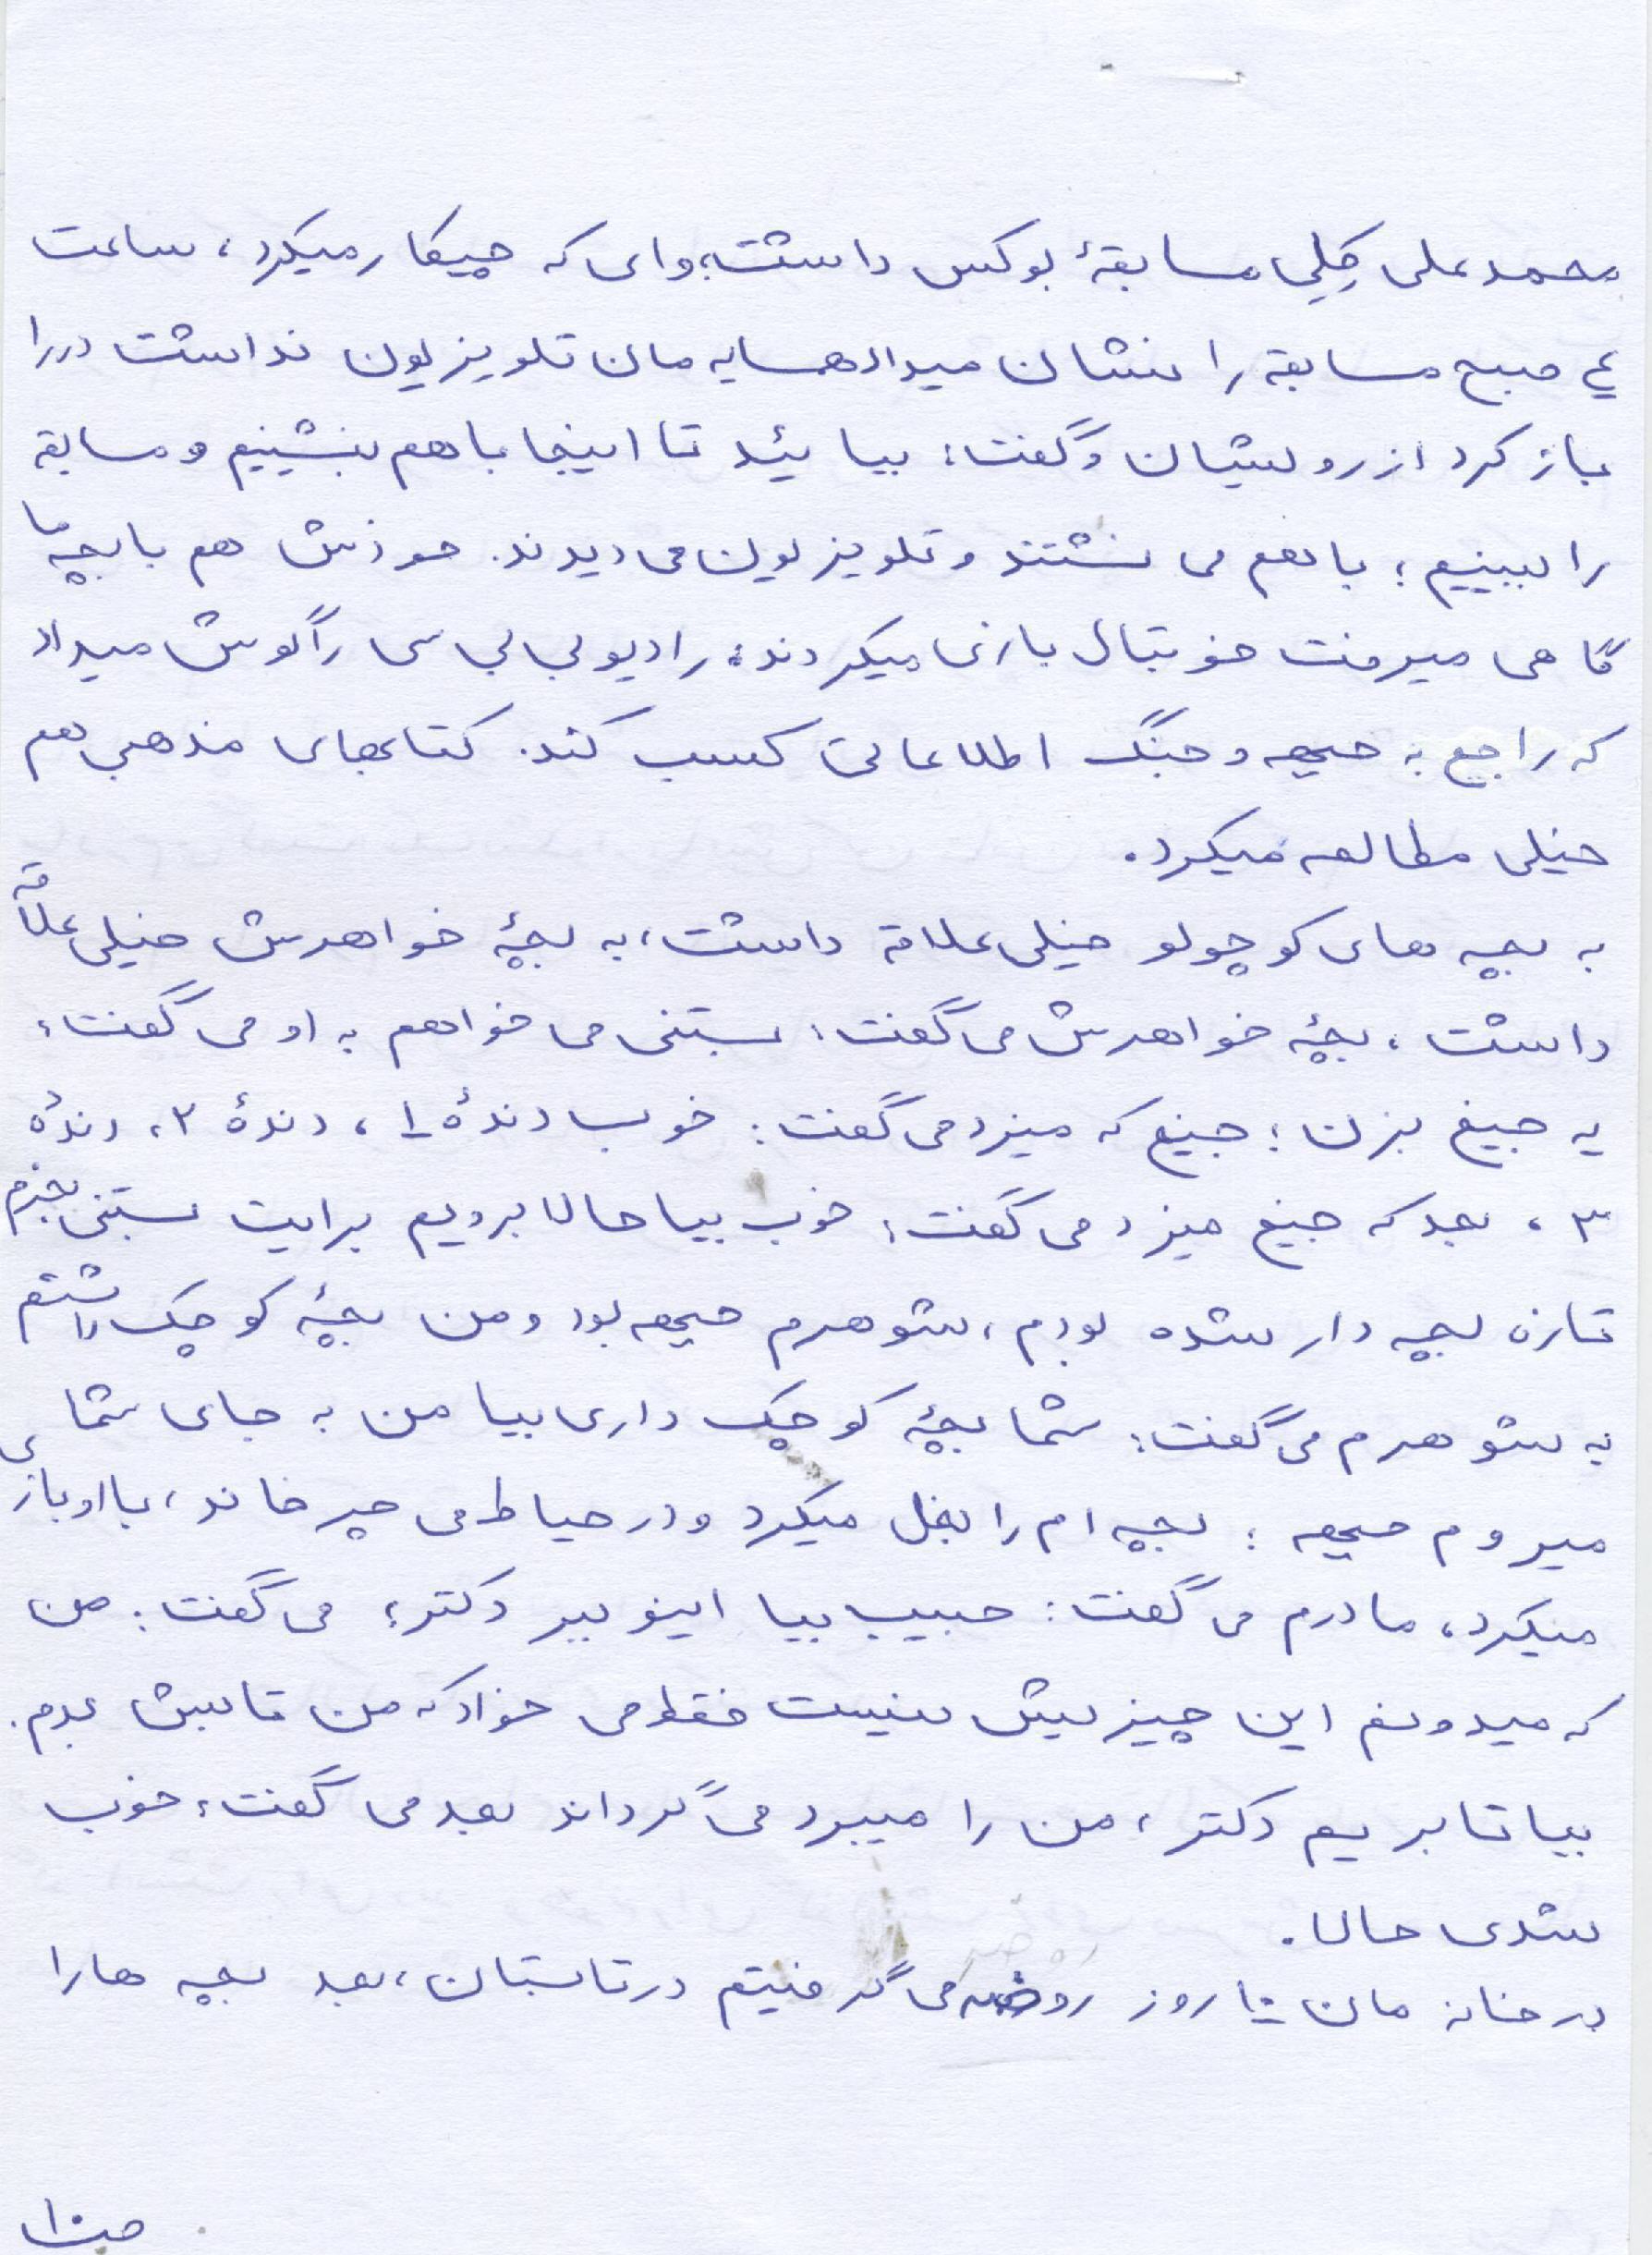 محمدعلی کِلِی مسابقهٔ بوکس داشت؛ وای که چیکار میکرد، ساعت
۴ صبح مسابقه را نشان میداد همسایه مان تلویزیون نداشت در را
باز کرد از رویشان و گفت: بیائید تا اینجا با هم بنشینیم و مسابقه
را ببینیم؛ با هم می نشستند و تلویزیون می دیدند. خودش هم با بچه ها
گاهی میرفت فوتبال بازی میکردند، رادیو بی بی سی را گوش میداد
که راجع به جبهه و جنگ اطلاعاتی کسب کند. کتابهای مذهبی هم
خیلی مطالعه میکرد.
به بچه های کوچولو خیلی علاقه داشت، به بچهٔ خواهرش خیلی علاقه
داشت، بچهٔ خواهرش می گفت: بستنی می خواهم به او می گفت:
یه جیغ بزن؛ جیغ که میزد می گفت: خوب دندهٔ ۱، دندهٔ ۲، دندهٔ
۳، بعد که جیغ میزد می گفت: خوب بیا حالا برویم برایت بستنی بخرم
تازه بچه دار شده بودم، شوهرم جبهه بود و من بچهٔ کوچک داشتم
به شوهرم می گفت: شما بچهٔ کوچک داری بیا من به جای شما
میروم جبهه؛ بچه ام را بغل میکرد و در حیاط می چرخاند، با او بازی
میکرد، مادرم می گفت: حبیب بیا اینو ببر دکتر؛ می گفت: من
که میدونم این چیزیش نیست فقط می خواد که من تابش بدم.
بیا تا بریم دکتر، من را میبرد می گرداند بعد می گفت: خوب
شدی حالا.
در خانه مان ۱۰ روز روضه می گرفتیم در تابستان، بعد بچه ها را
ص۱۰